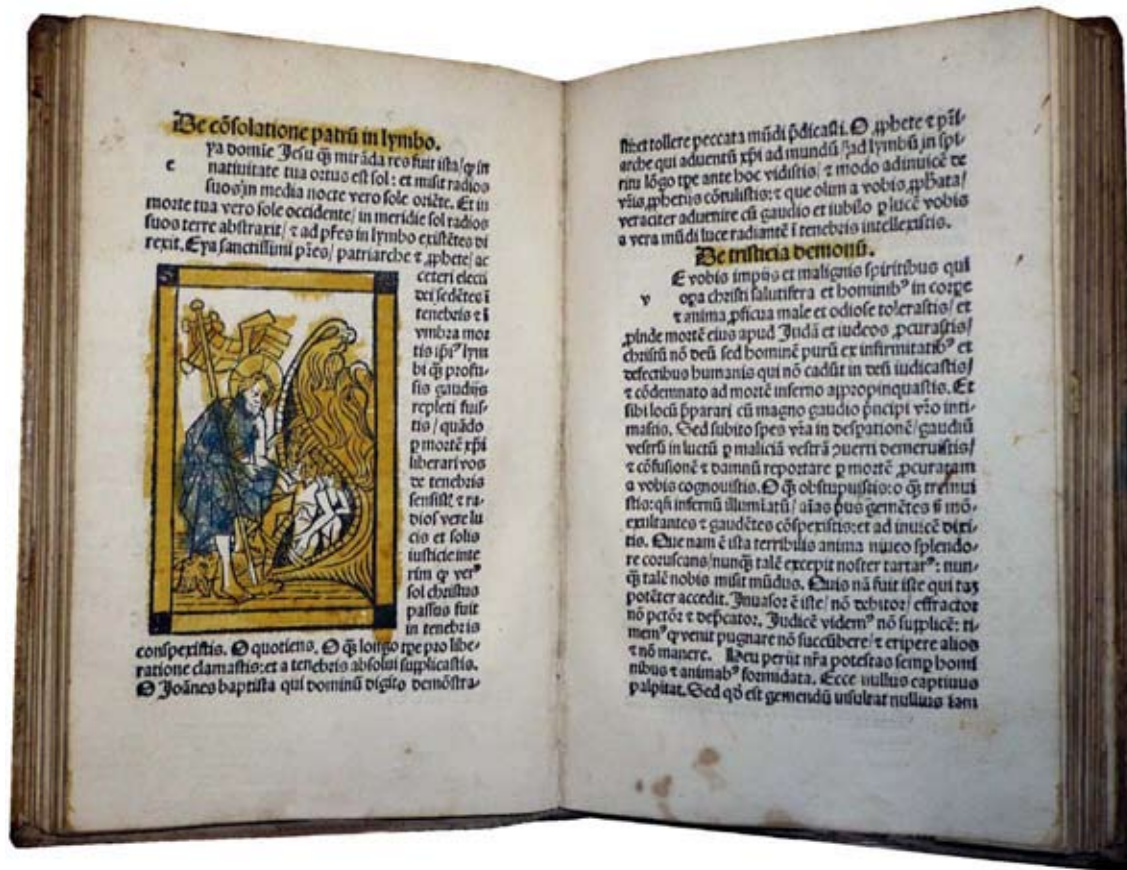 De cōsolatione patrū in lymbo.
ya domie Jesu qȝ mirāda res fuit ista/ qꝫ in
e nativitate tua ortus est sol: et misit radios
suos in media nocte vero sole oriēte. Et in
morte tua vero sole occidente/ in meridie sol radios
suos terre abstraxit/ ⁊ ad p̄res in lymbo existētes di
rexit. Eya sanctissimi p̄res/ patriarche ⁊ ꝓphete/ ac
ceteri electi
dei sedētes ī
tenebris ⁊ ī
vmbra mor
tis ip̄i⁹ lym
bi qȝ profu-
sis gaudijs
repleti fuis-
tis/ quādo
ꝑ mortē xp̄i
liberari vos
de tenebris
sensistꝭ ⁊ ra-
dios vere lu
cis et solis
iusticie inte
rim qꝫ ver⁹
sol christus
passus fuit
in tenebris
conspexistis. O quotiens. O qȝ longo tꝑe pro libe-
ratione clamastis: et a tenebris absolui supplicastis.
O Joānes baptista qui dominū digito demōstra-
stiet tollere peccata mūdi p̄dicasti. O ꝓphete ⁊ p̄ri-
arche qui aduentū xp̄i ad mundū/ ad lymbū in spi-
ritu lōgo tꝑe ante hoc vidistis/ ⁊ modo adinuicē de
vr̄is ꝓphetijs cōtulistis: ⁊ que olim a vobis ꝓph̄ata/
veraciter aduenire cū gaudio et iubilo ꝑ lucē vobis
a vera mūdi luce radiantē ī tenebris intellexistis.
De tristicia demonū.
E vobis impijs et malignis spiritibus qui
v oꝑa christi salutifera et hominib⁹ in corꝑe
⁊ anima ꝓficua male et odiose tolerastis/ et
ꝓinde mortē eius apud Judā et iudeos ꝓcurastis/
christū nō deū sed hominē purū ex infirmitatib⁹ et
defectibus humanis qui nō cadūt in deū iudicastis/
⁊ cōdemnato ad mortē inferno appropinquastis. Et
sibi locū p̄parari cū magno gaudio p̄ncipi vr̄o inti-
mastis. Sed subito spes vr̄a in desꝑationē/ gaudiū
vestrū in luctū ꝑ maliciā vestrā ↄuerti demeruistis/
⁊ cōfusionē ⁊ damnū reportare ꝑ mortē ꝓcuratam
a vobis cognouistis. O qȝ obstupuistis: o qȝ tremui
stis: qn̄ infernū illumiatū/ aīas pus gemētes mō-
exultantes ⁊ gaudētes cōspexistis: et ad inuicē dixi-
tis. Que nam ē ista terribilis anima niueo splendo-
re coruscans/ nunqȝ talē excepit noster tartar⁹: nun-
qȝ talē nobis misit mūdus. Quis nā fuit iste qui taꝫ
potēter accedit. Inuasor ē iste/ nō debitor/ effractor
nō pctōr ⁊ dep̄cator. Judicē videm⁹ nō supplicē: ti-
mem⁹ qꝫ venit pugnare nō succūbere/ ⁊ eripere alios
⁊ nō manere. Heu perijt nr̄a potestas semꝑ homi
nibus ⁊ animab⁹ formidata. Ecce nullus captiuus
palpitat. Sed qd̄ est gemendū insultat nullius iam